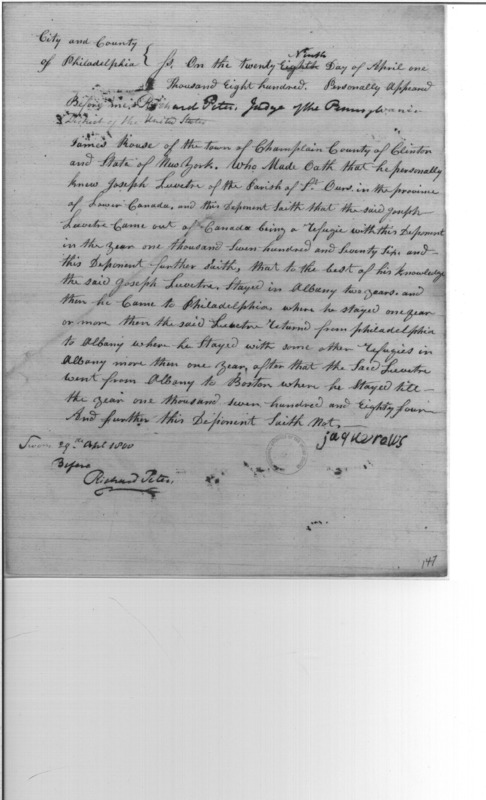 City and County
of Philadelphia { Ss. On the twenty Eighth Ninth Day of April one
Thousand Eight hundred. Personally Appeard
Before me Richard Peters Judge of the Pennsylvania
District of the United States
James Rouse of the town of Champlain County of Clinton
and State of New York. Who Made Oath that he personally
knew Joseph Luvetre of the Parish of St. Ours. in the province
of Lower Canada, and this Deponent Saith that the said Joseph
Luvetre Came out of Canada being a refugie with this Deponent
in the year one thousand Seven hundred and Seventy Six, and
this Deponent further Saith, that to the best of his knowledge
the said Joseph Luvetre, Stayed in Albany two years. and
then he Came to Philadelphia where he stayed one year
or more then the said Luvetre returnd from philadelphia
to Albany where he Stayed with some other Refugies in
Albany more then one year, after that the Said Luvetre
went from Albany to Boston where he Stayed till
the year one thousand Seven hundred and Eighty four
And further this Deponent Saith Not.
Sworn 29th April 1800
Before
Richard Peters
147